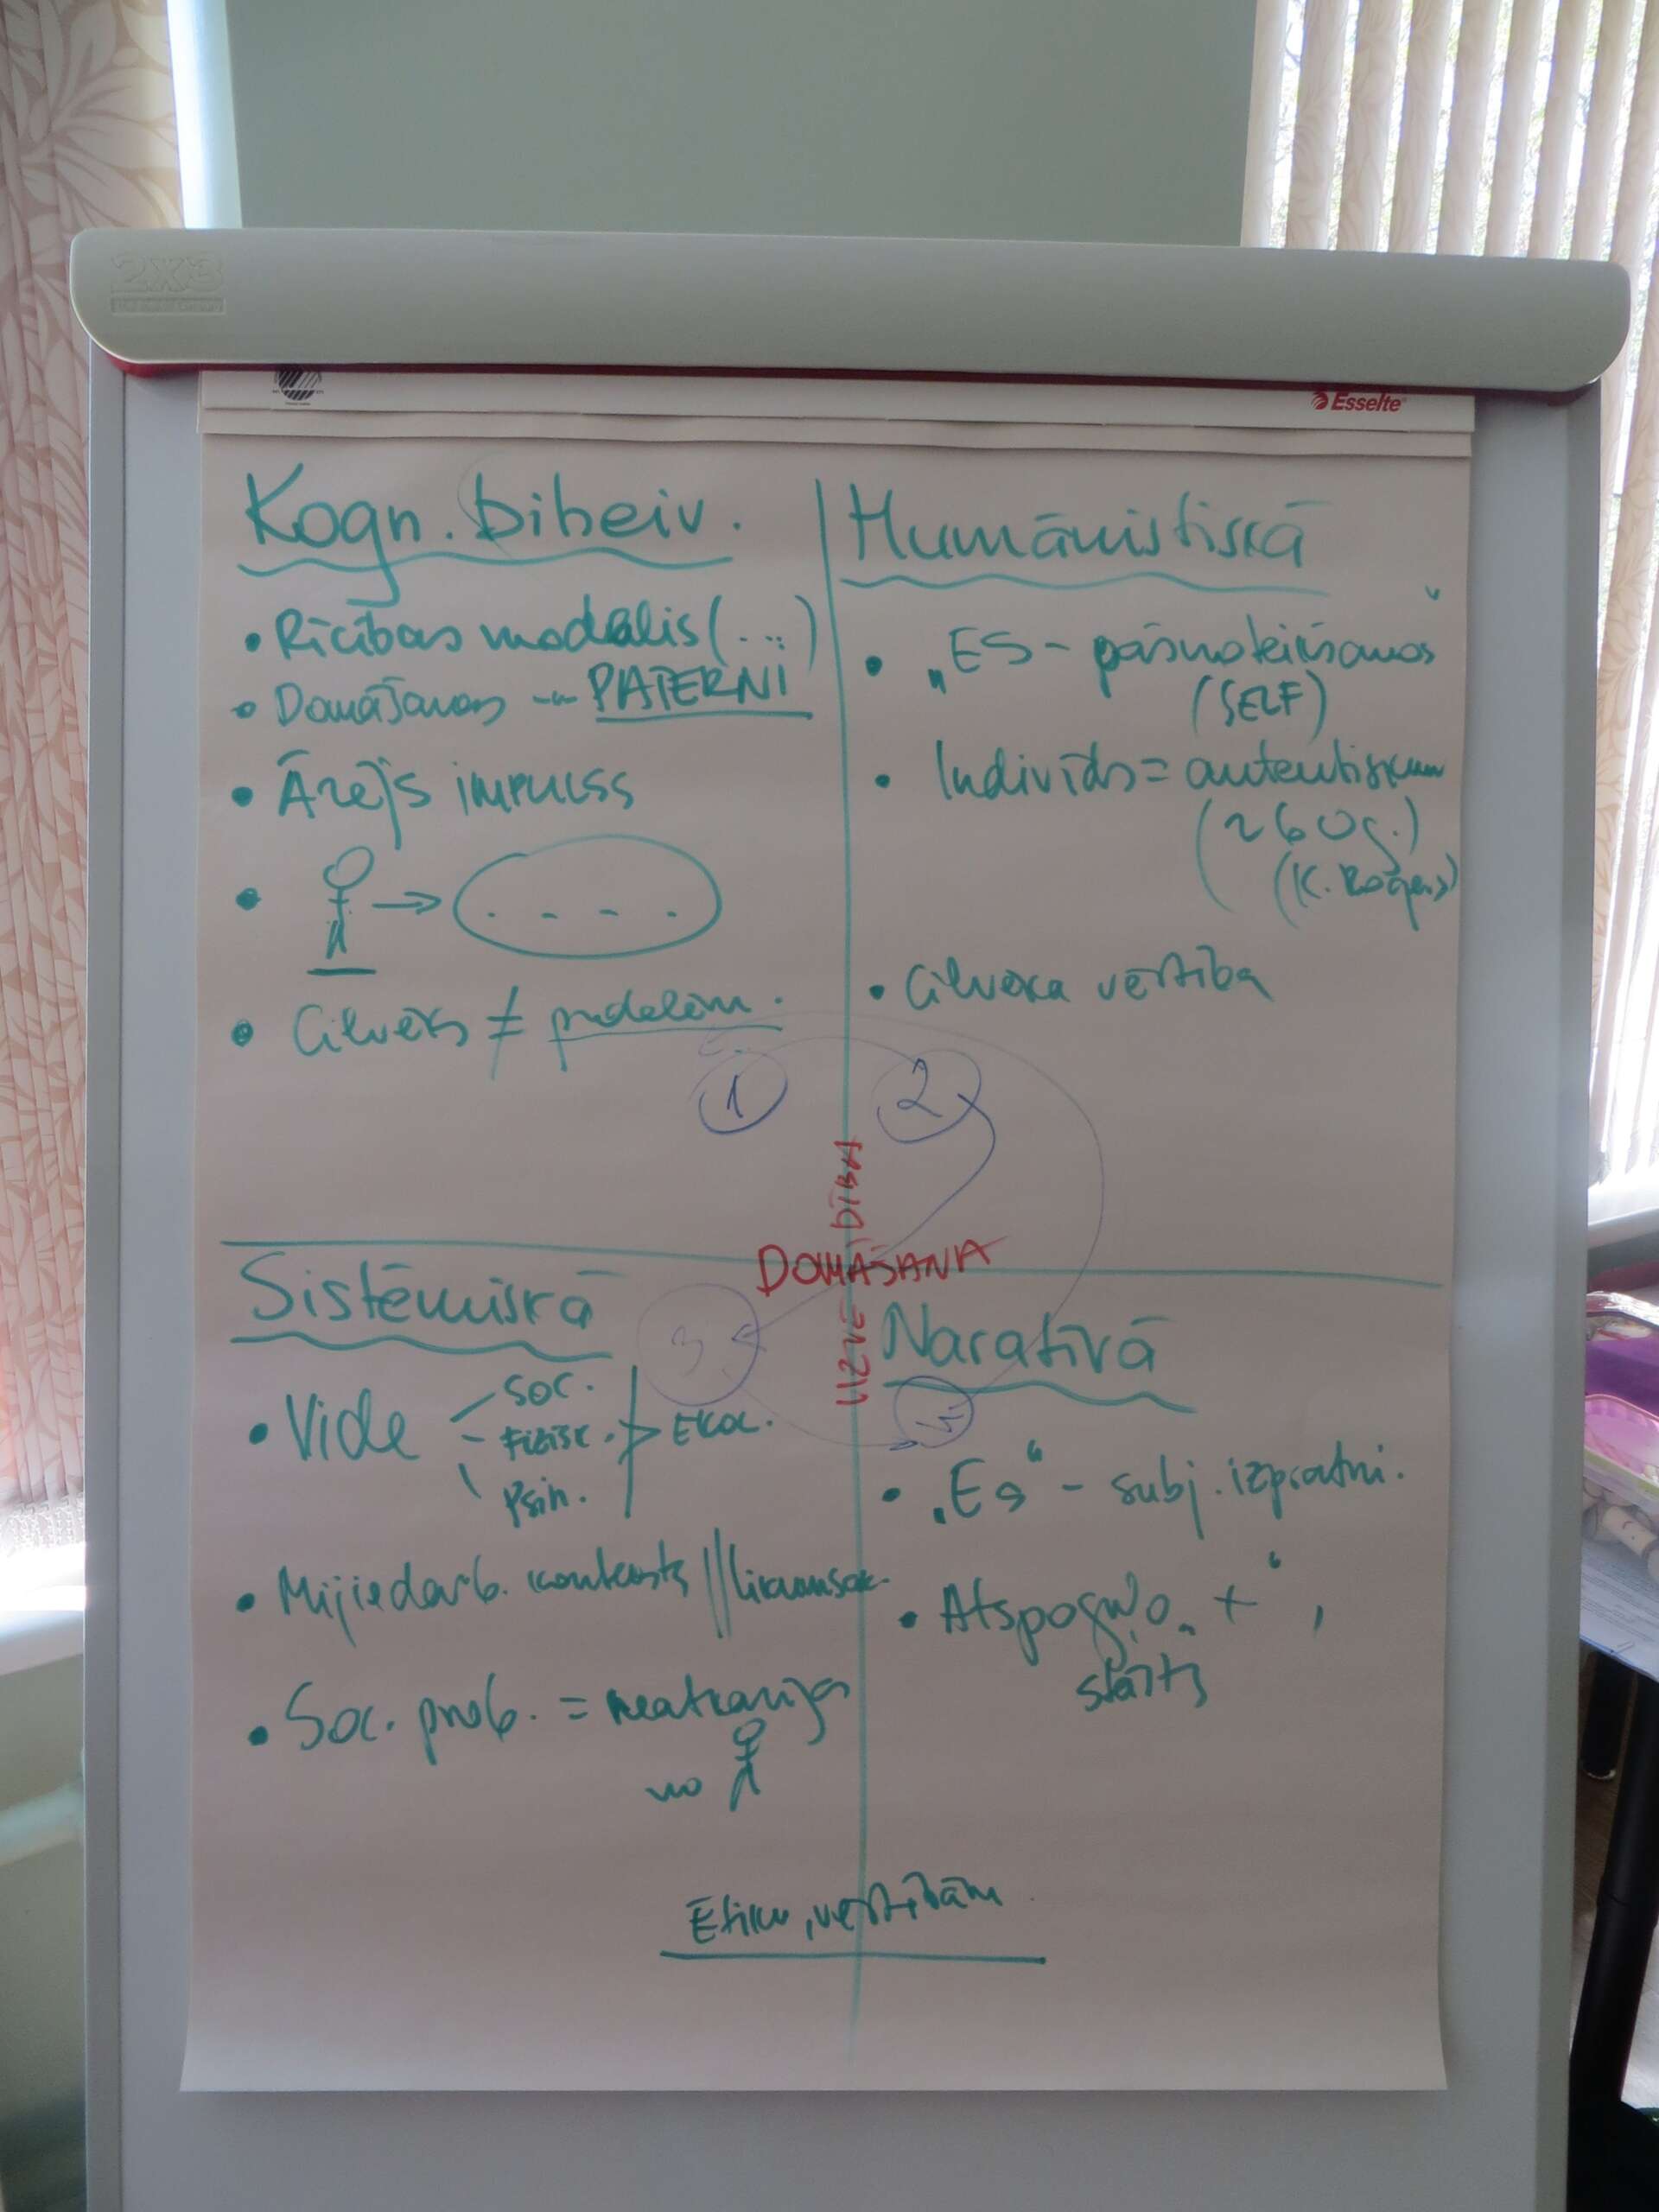 2x3
Esselte
Kogn. biheiv.
• Rīcības modelis (...)
• Domāšanas -"- PATERNI
• Ārējs impulss
• →
• Cilvēks ≠ problēm.
1
Humānistiskā
• „ES - pašnoteikšanas"
(SELF)
• Indivīds = autentiskum
(~60g.)
(K. Rogers)
• Cilvēka vērtība
2
DOMĀŠANA
UZVEDĪBA
Sistēmiskā
3
• Vide
soc.
Fizisk.
Psih.
> Ekol.
• Mijiedarb. konteksts //
• Soc. prob. = reakcija
no
Naratīvā
4
• „Es" - subj. izpratni.
• Atspoguļo „+",
stāsts
Ētiku, vērtībām